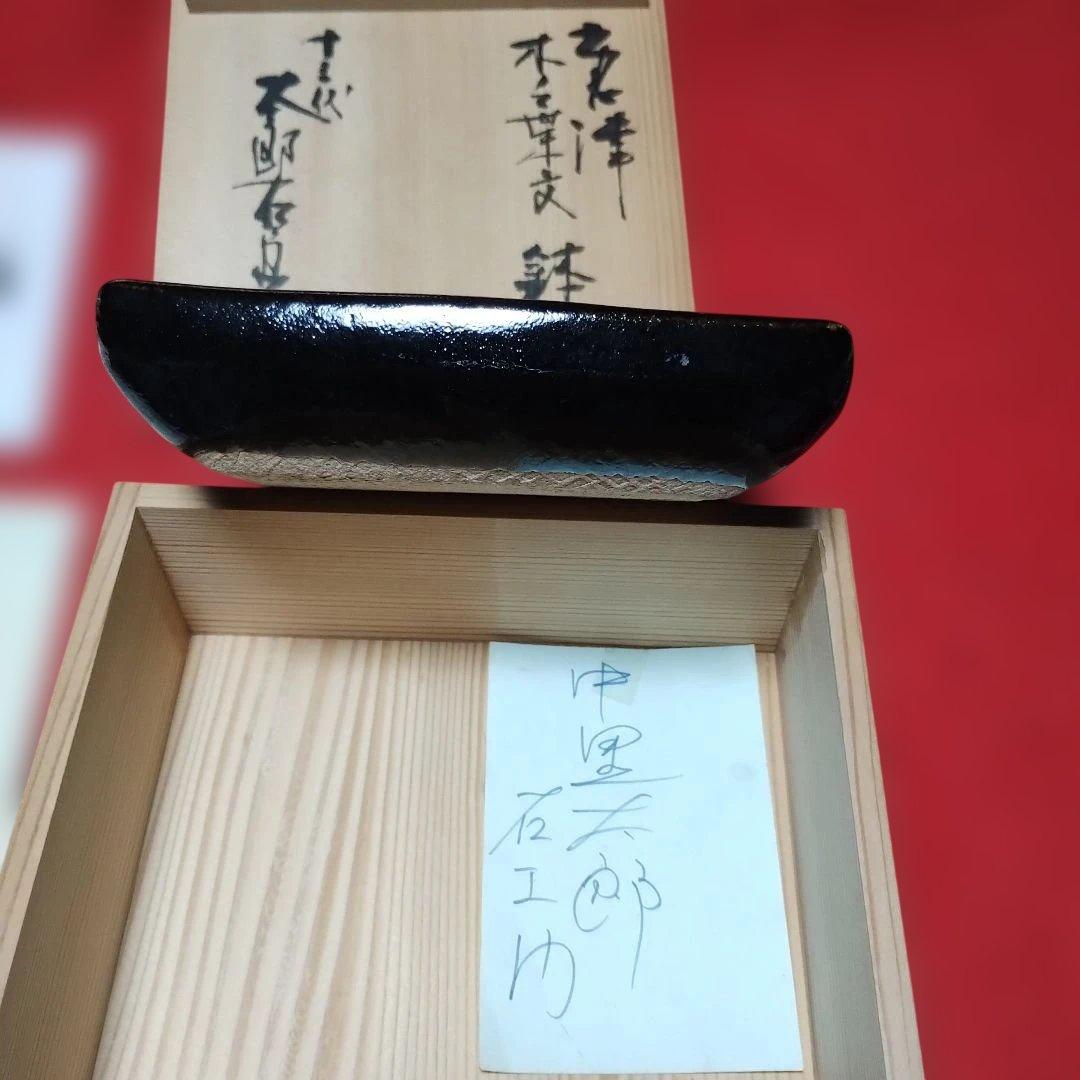 唐津
木ノ葉文 鉢
十三代
太郎右
中里太郎
右エ门